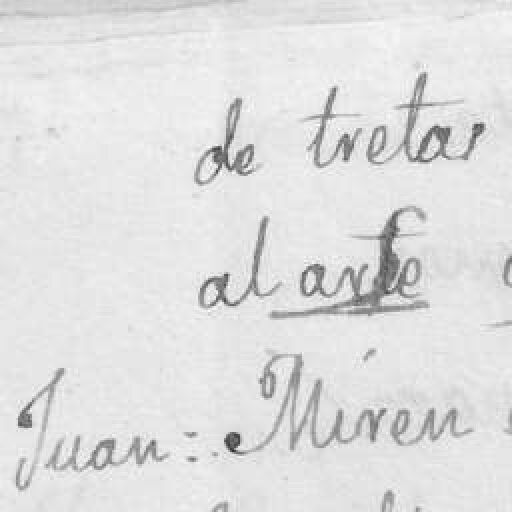 de tretas
al arte
Juan: Miren